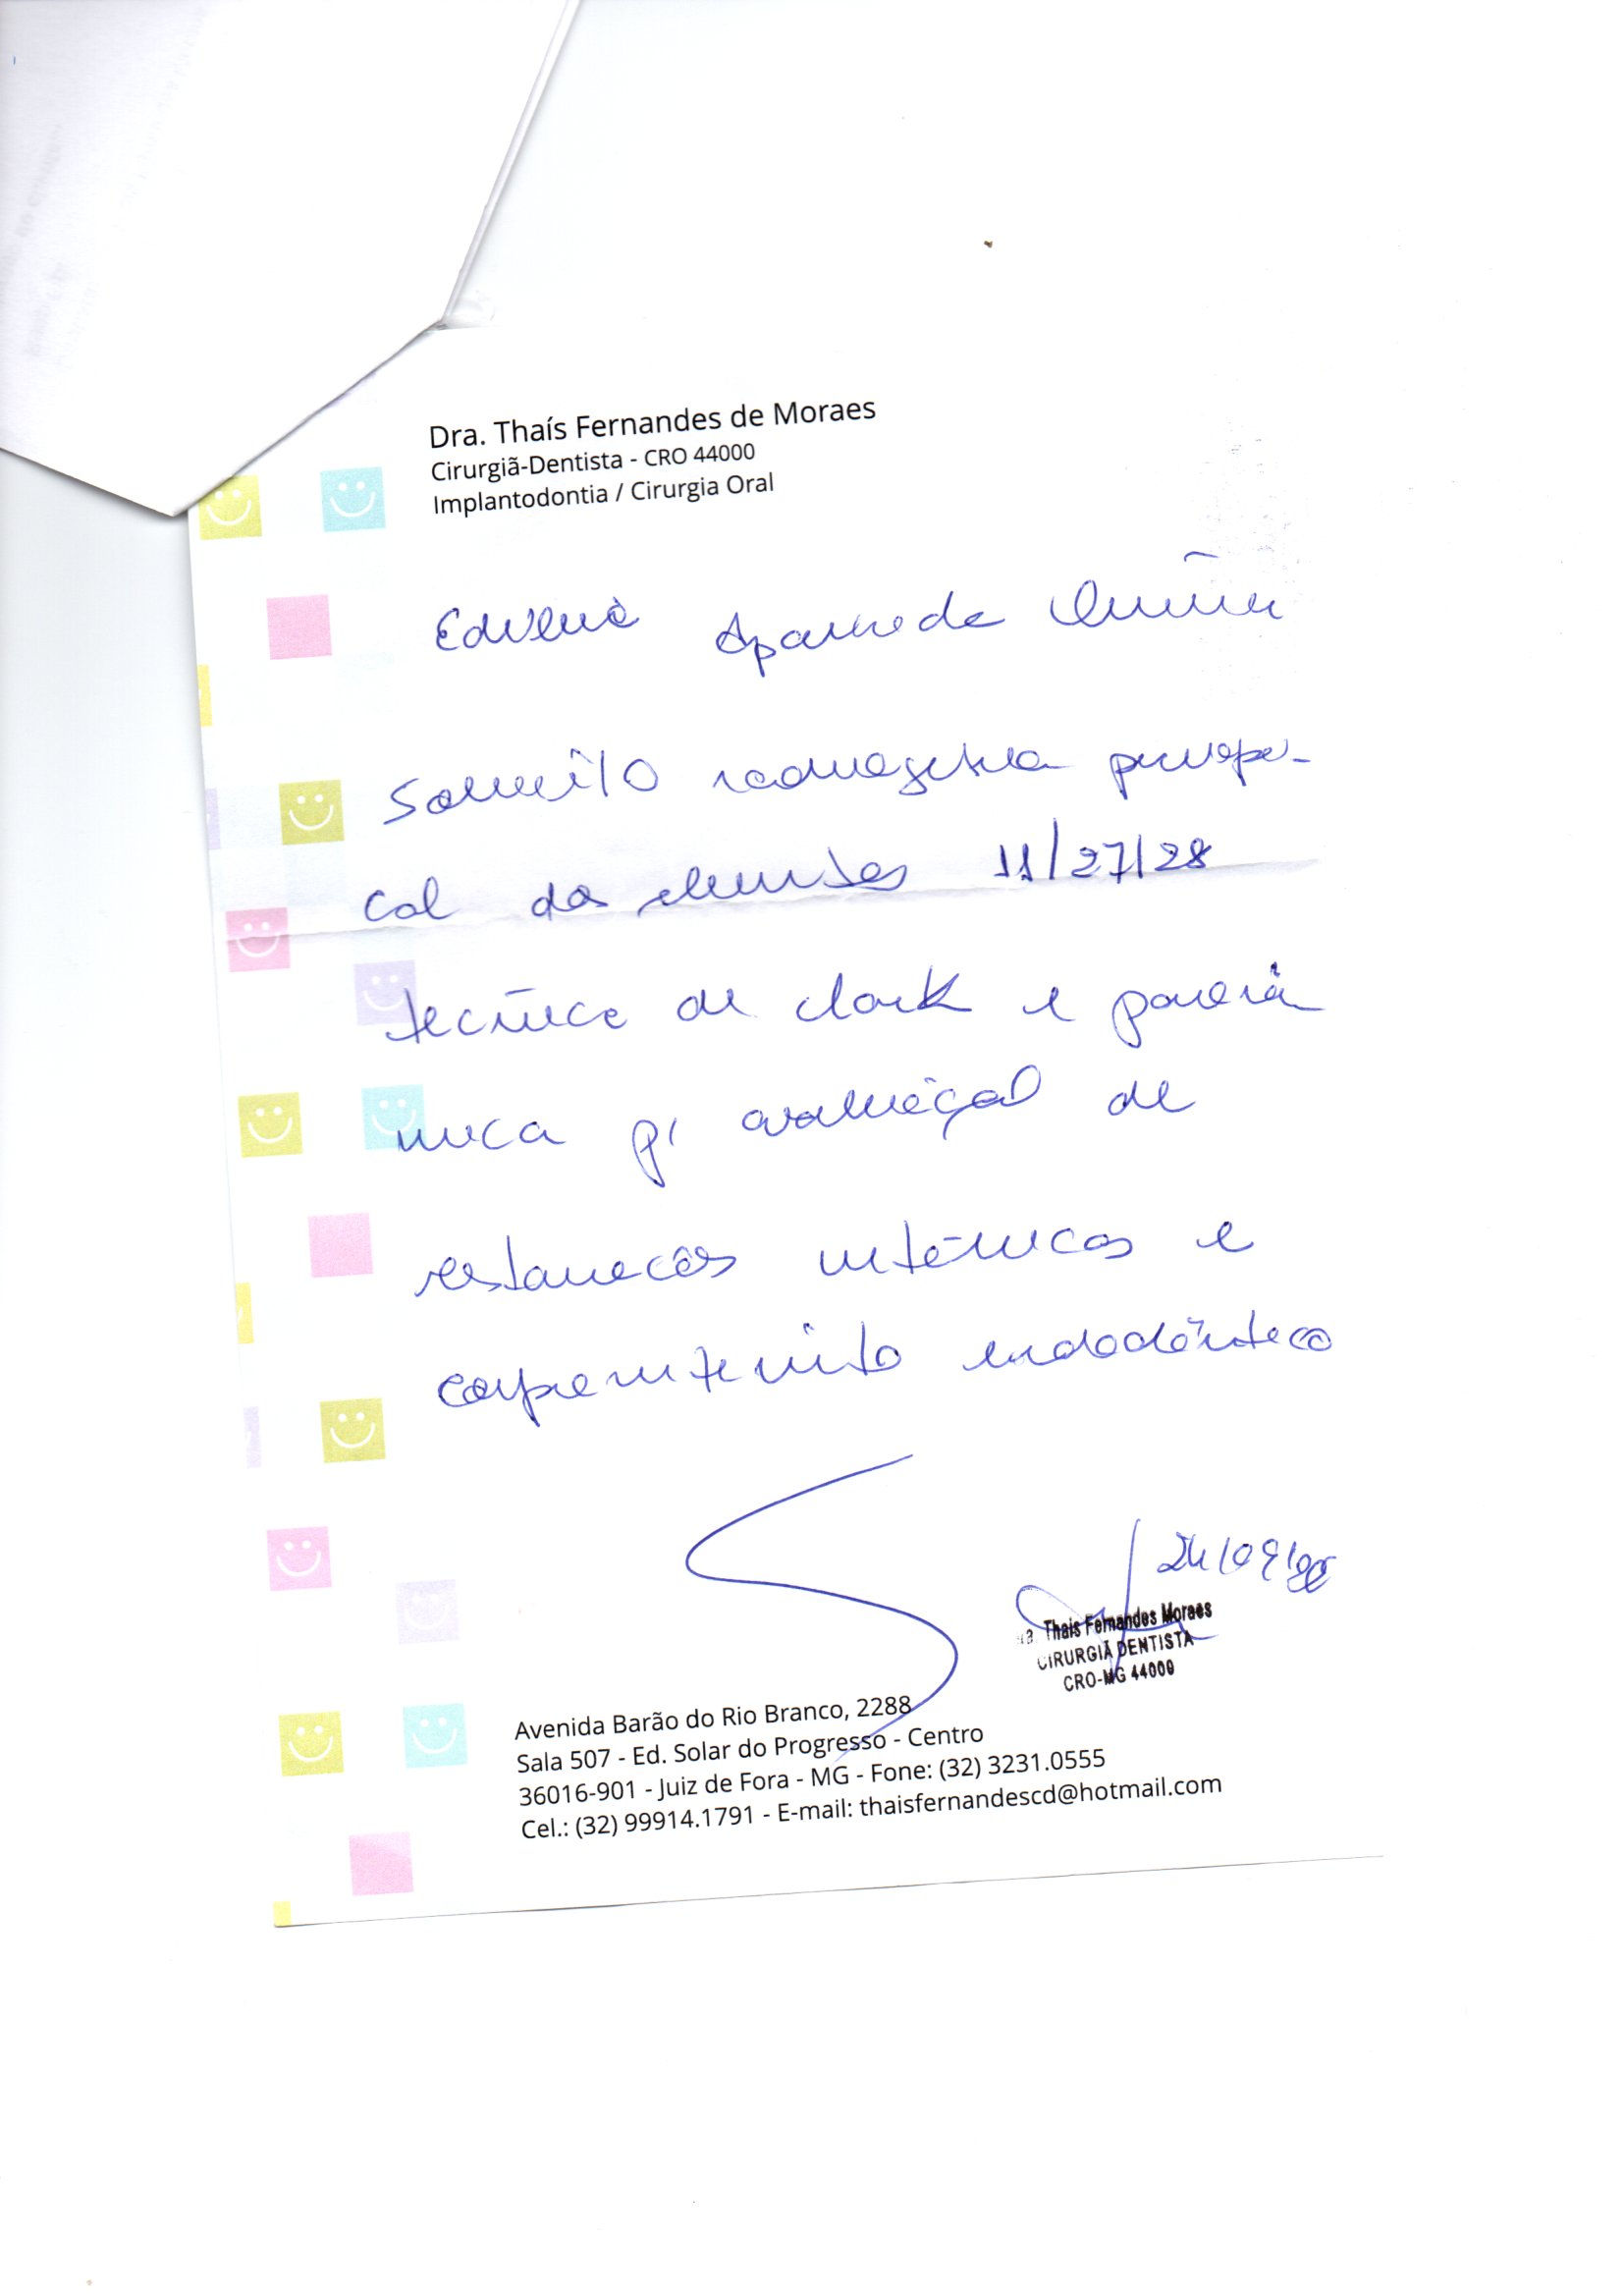 Dra. Thaís Fernandes de Moraes
Cirurgiã-Dentista - CRO 44000
Implantodontia / Cirurgia Oral
Aparecida
Solicito radiografia periapi-
cal dos elementos 11/27/28
técnica de clark e panorâ
mica p/ avaliação de
restaurações e
endodôntico
24/09/
Thais Fernandes Moraes
CIRURGIÃ DENTISTA
CRO-MG 44000
Avenida Barão do Rio Branco, 2288
Sala 507 - Ed. Solar do Progresso - Centro
36016-901 - Juiz de Fora - MG - Fone: (32) 3231.0555
Cel.: (32) 99914.1791 - E-mail: thaisfernandescd@hotmail.com